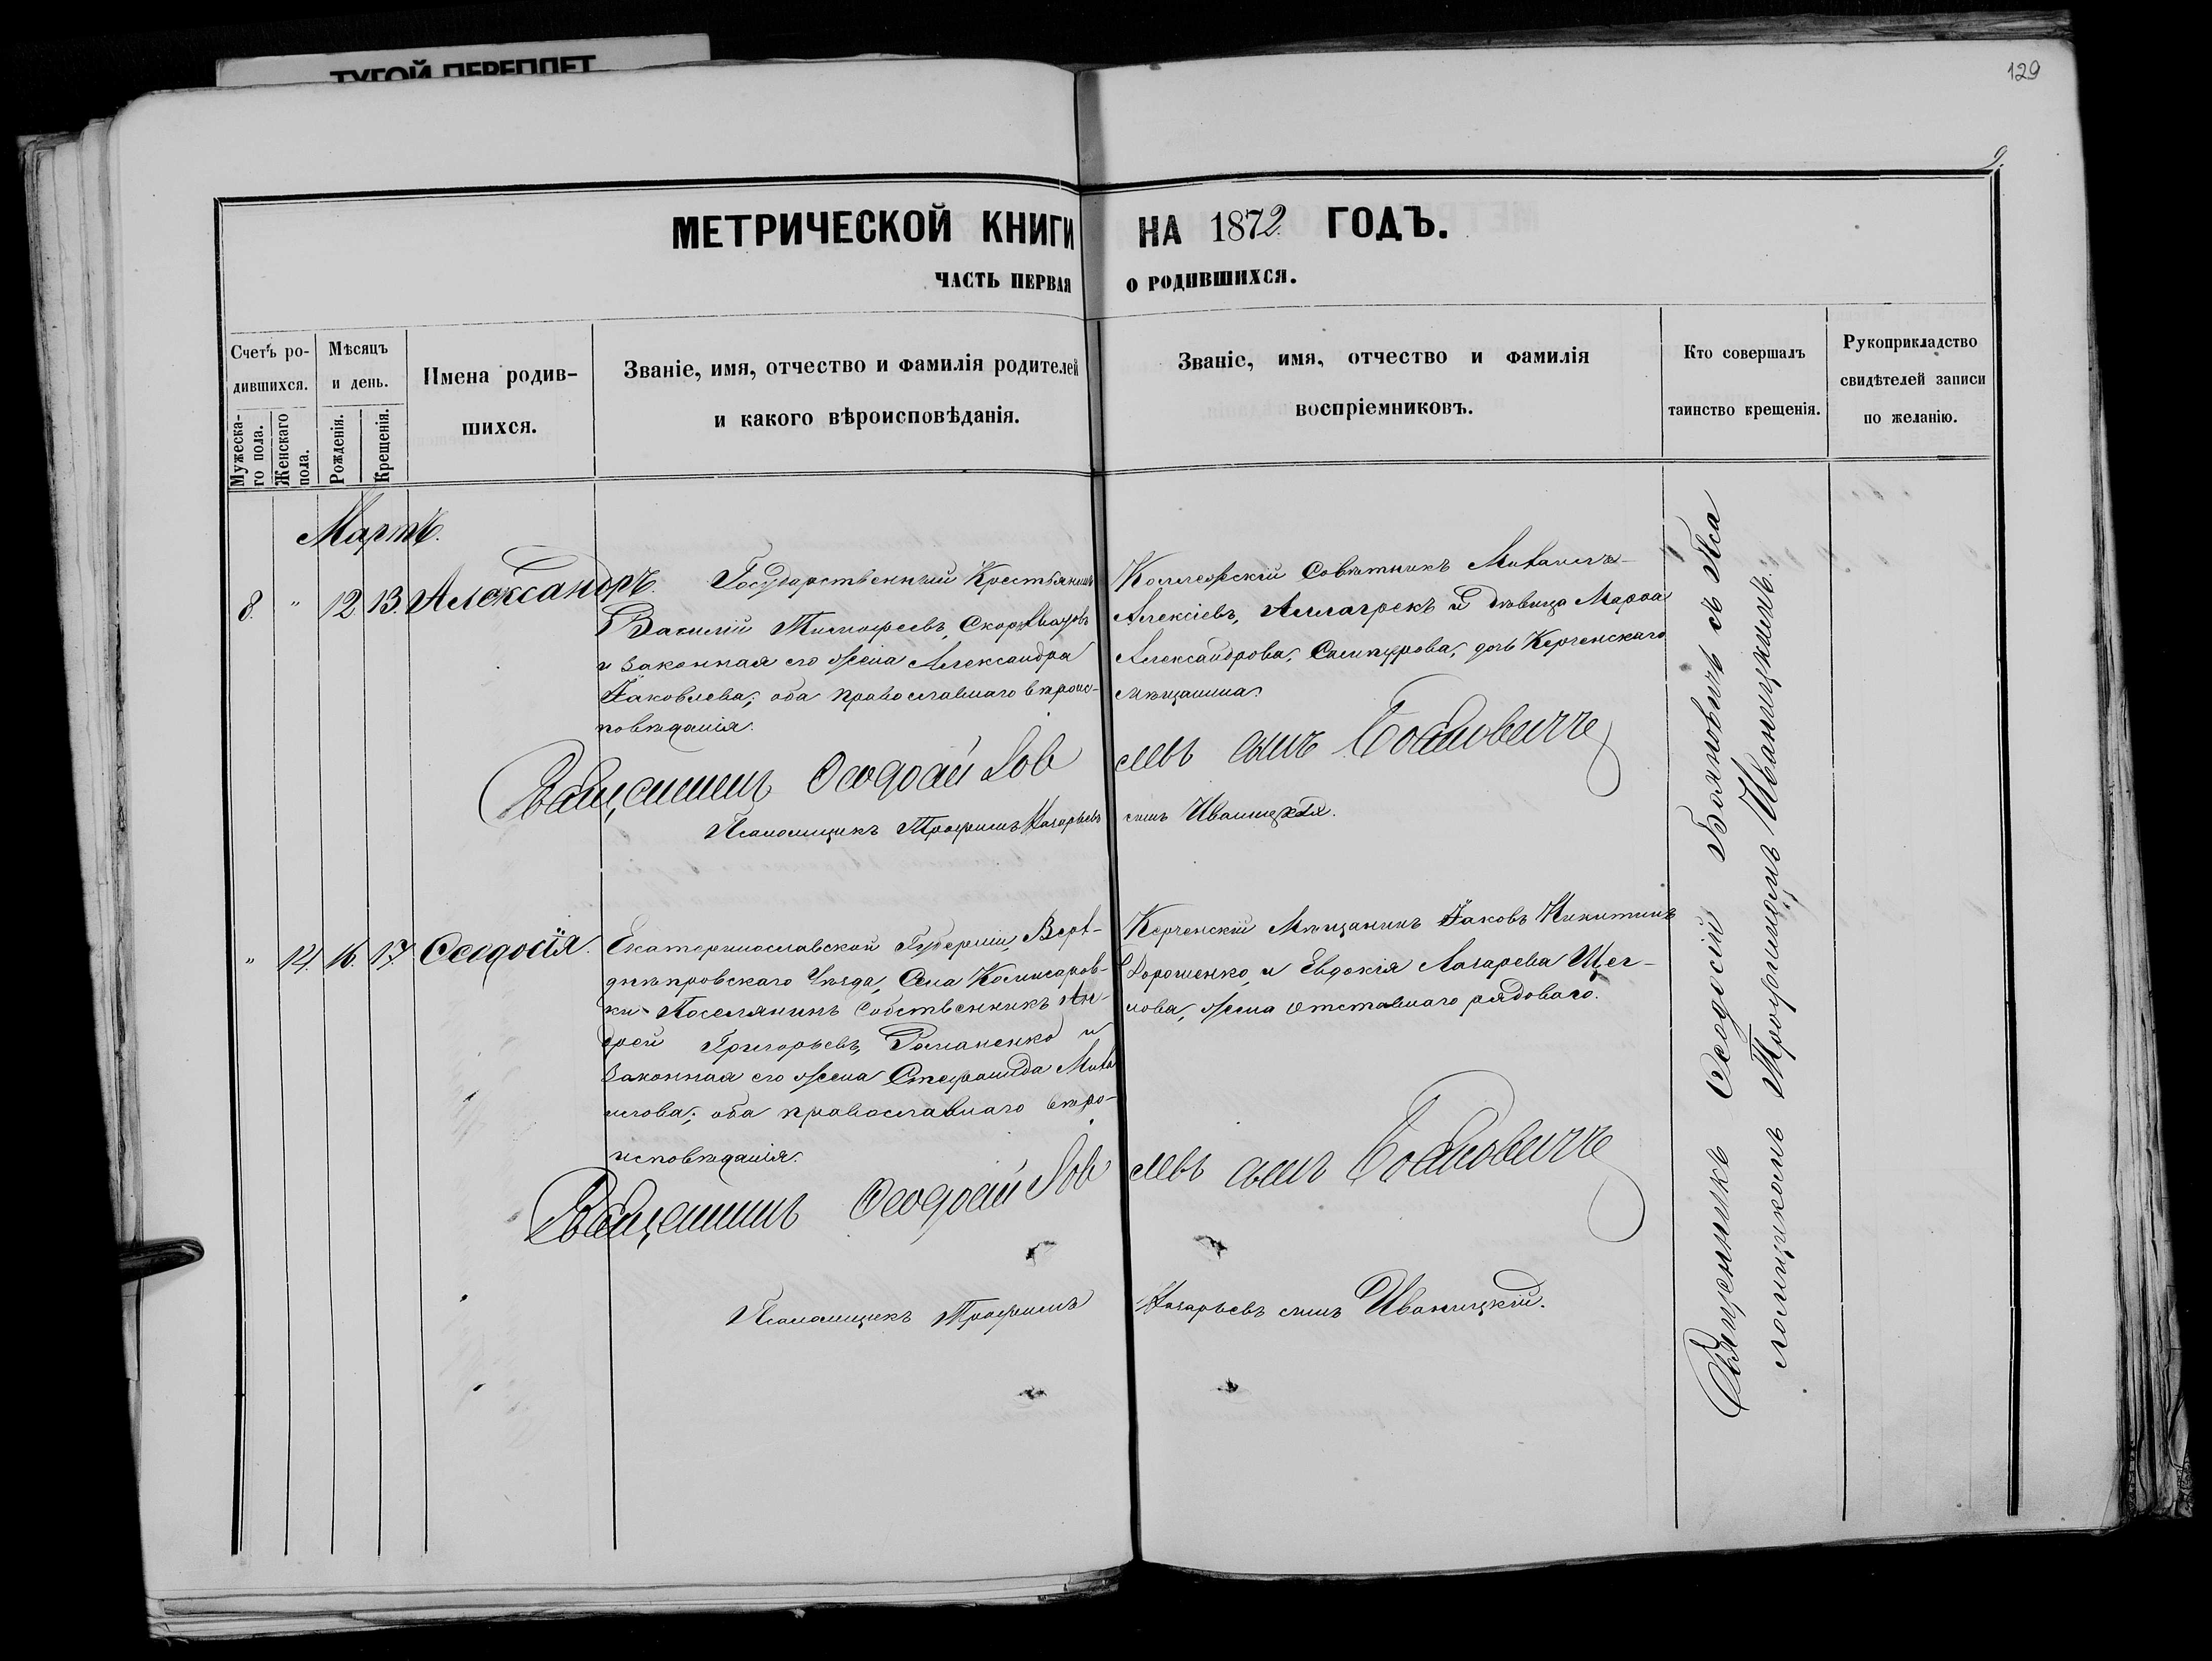 ТУГОЙ ПЕРЕПЛЕТ
129
9.
МЕТРИЧЕСКОЙ КНИГИ НА 1872 ГОДЪ.
ЧАСТЬ ПЕРВАЯ О РОДИВШИХСЯ.
Счетъ ро-
дившихся.
Мужеска-
го пола.
Женскаго
пола.
Мѣсяцъ
и день.
Рожденія.
Крещенія.
Имена родив-
шихся.
Званіе, имя, отчество и фамилія родителей
и какого вѣроисповѣданія.
Званіе, имя, отчество и фамилія
воспріемниковъ.
Кто совершалъ
таинство крещенія.
Рукоприкладство
свидѣтелей записи
по желанію.
Мартъ.
8. " 12. 13. Александръ.
Государственный Крестьянинъ
Василій Тимофеевъ,
и законная его жена Александра
Яковлева; оба православнаго вѣроис-
повѣданія.
Коллежскій Совѣтникъ Михаилъ
Алексіевъ, Аллагрекъ и дѣвица Марѳа
Александрова, дочь Керченскаго
мѣщанина.
Священникъ Ѳеодосій Іов
левъ сынъ Бояновичъ
Псаломщикъ Трофимъ Назарьевъ
сынъ Иваницкій.
" 14. 16. 17. Ѳеодосія.
Екатеринославской Губерніи, Верх-
днѣпровскаго Уѣзда, Села Комисаров-
ки Поселянинъ Собственникъ Ан-
дрей Григорьевъ, Романенко и
законная его жена Стефанида Миха
илова; оба православнаго вѣро-
исповѣданія.
Керченскій Мѣщанинъ Яковъ Никитинъ
Дорошенко, и Евдокія Лазарева Щег-
лова, жена отставнаго рядоваго.
Священникъ Ѳеодосій Іов
левъ сынъ Бояновичъ
Псаломщикъ Трофимъ
Назарьевъ сынъ Иваницкій.
Священникъ Ѳеодосій Бояновичъ съ Пса
ломщикомъ Трофимомъ Иваницкимъ.